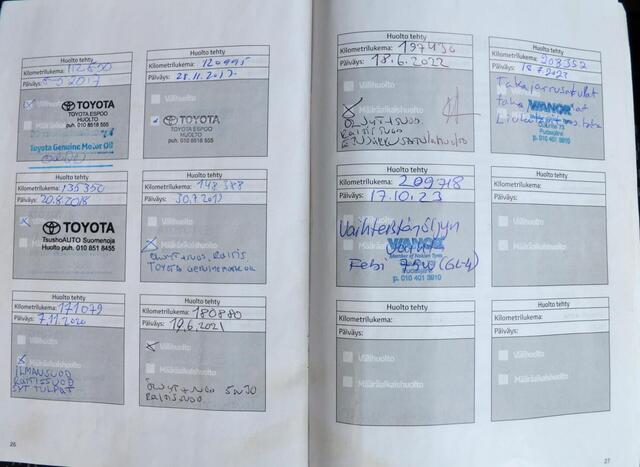 Huolto tehty
Kilometrilukema: 112800
Päiväys: 2017
Välihuolto
TOYOTA
TOYOTA ESPOO
HUOLTO
puh. 010 8518 555
Toyota Genuine Motor Oil
Huolto tehty
Kilometrilukema: 120995
Päiväys: 28.11.2017
Välihuolto
TOYOTA
TOYOTA ESPOO
HUOLTO
puh. 010 8518 555
Huolto tehty
Kilometrilukema: 135350
Päiväys: 20.8.2018
TOYOTA
TsushoAUTO Suomenoja
Huolto puh. 010 851 8455
Huolto tehty
Kilometrilukema: 148388
Päiväys: 30.7.2019
Välihuolto
ÖLJYT+SUOD. RAITIS
TOYOTA GENUINE MOTOR OIL
Huolto tehty
Kilometrilukema: 171079
Päiväys: 7.11.2020
Välihuolto
Määräaikaishuolto
ILMANSUOD
RAITISSUOD
SYT TULPAT
Huolto tehty
Kilometrilukema: 180880
Päiväys: 19.6.2021
Välihuolto
Määräaikaishuolto
ÖLJYT+SUO 5W30
RAITISSUOD
26
Huolto tehty
Kilometrilukema: 197430
Päiväys: 18.6.2022
Välihuolto
ÖLJYT+SUOD.
RAITISSUOD
Huolto tehty
Kilometrilukema: 208352
Päiväys: 18.7.2023
Takajarrusatulat
taka
VIANOR
Huolto tehty
Kilometrilukema: 209718
Päiväys: 17.10.23
Vaihteistoöljyn
VIANOR
Member of Nokian Tyres
Febi 75W (GL-4)
p. 010 401 3910
Huolto tehty
Kilometrilukema:
Päiväys:
Välihuolto
Määräaikaishuolto
Huolto tehty
Kilometrilukema:
Päiväys:
Välihuolto
Määräaikaishuolto
Huolto tehty
Kilometrilukema:
Päiväys:
Välihuolto
Määräaikaishuolto
27